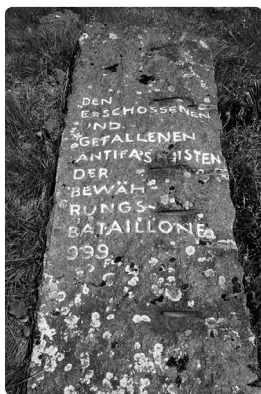 DEN
ERSCHOSSENEN
UND
GEFALLENEN
ANTIFASCHISTEN
DER
BEWÄH-
RUNGS-
BATAILLONE
999